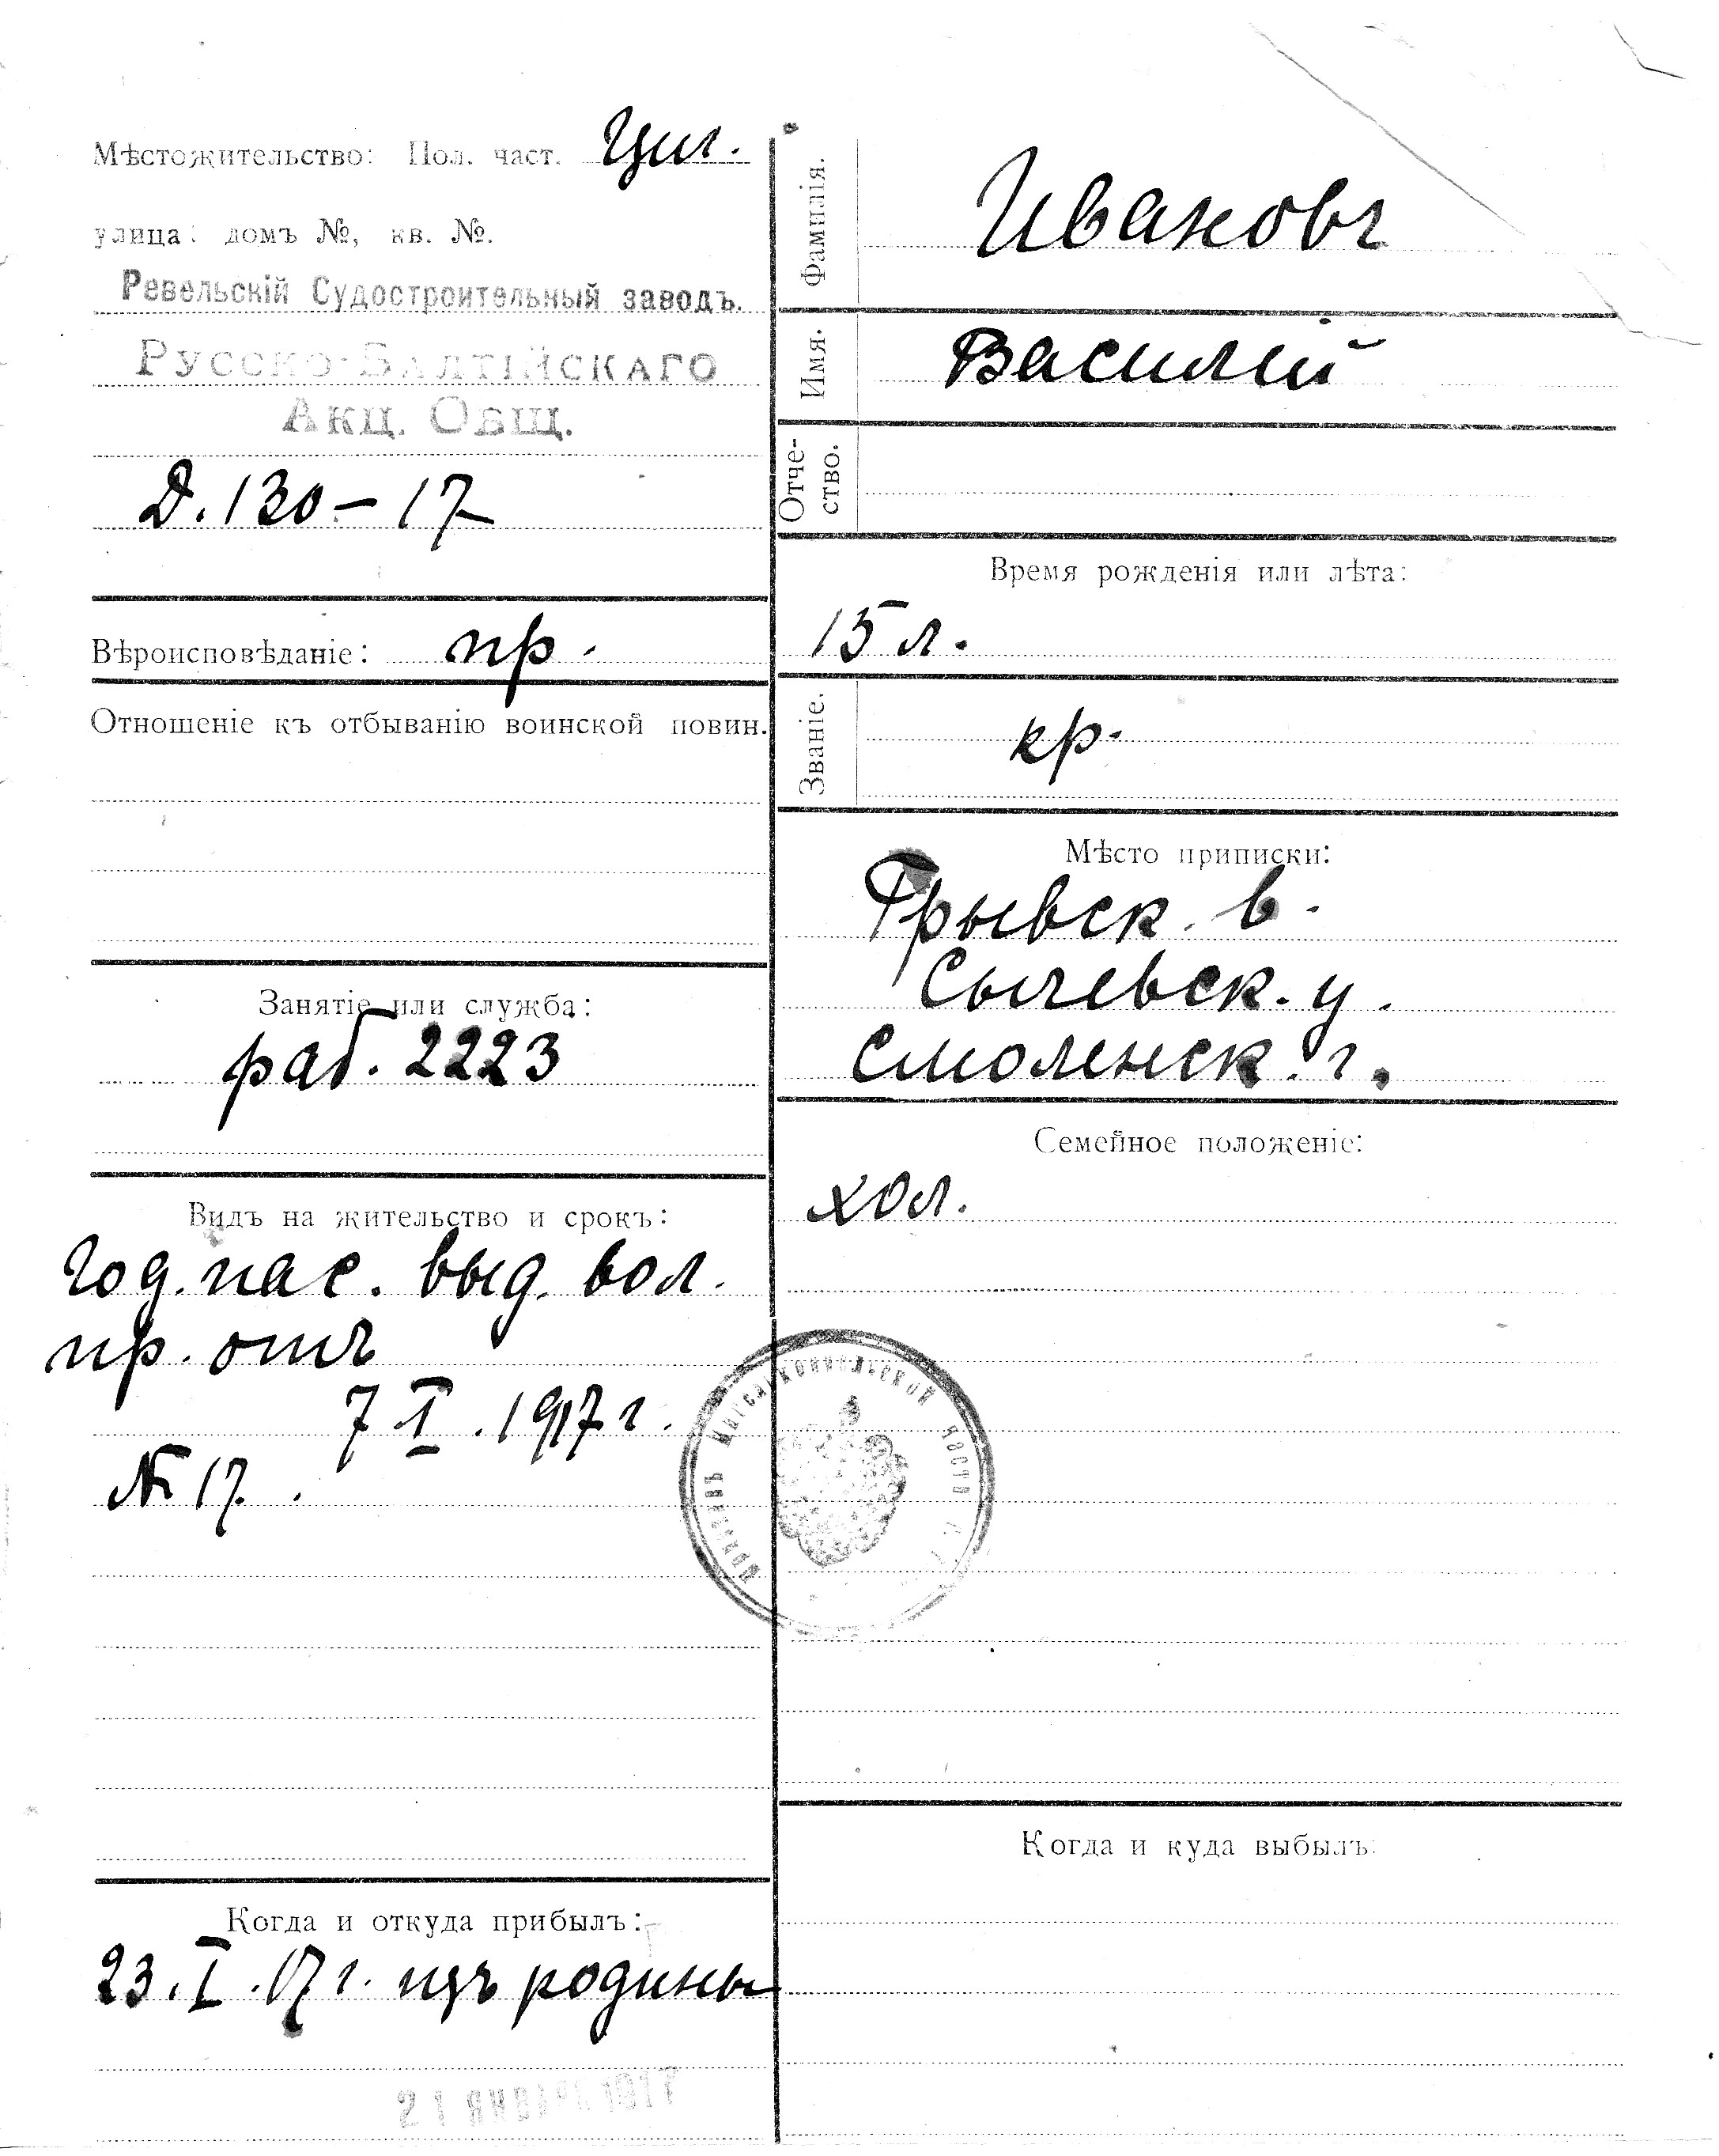 Мѣстожительство: Пол. част. Циг.
улица: домъ №, кв. №.
Ревельскій Судостроительный заводъ.
Русско-Балтійскаго
Акц. Общ.
Д. 130 – 17
Вѣроисповѣданіе: пр.
Отношеніе къ отбыванію воинской повин.
Занятіе или служба:
раб. 2223
Видъ на жительство и срокъ:
год. пас. выд. вол.
пр. отъ
7 I. 1917 г.
№ 17.
Когда и откуда прибылъ:
23. I. 17 г. изъ родины
21 января 1917
Фамилія.
Ивановъ
Имя.
Василій
Отче-
ство.
Время рожденія или лѣта:
15 л.
Званіе.
кр.
Мѣсто приписки:
в.
Сычевск. у.
Смоленск. г.
Семейное положеніе:
хол.
части
Когда и куда выбылъ: